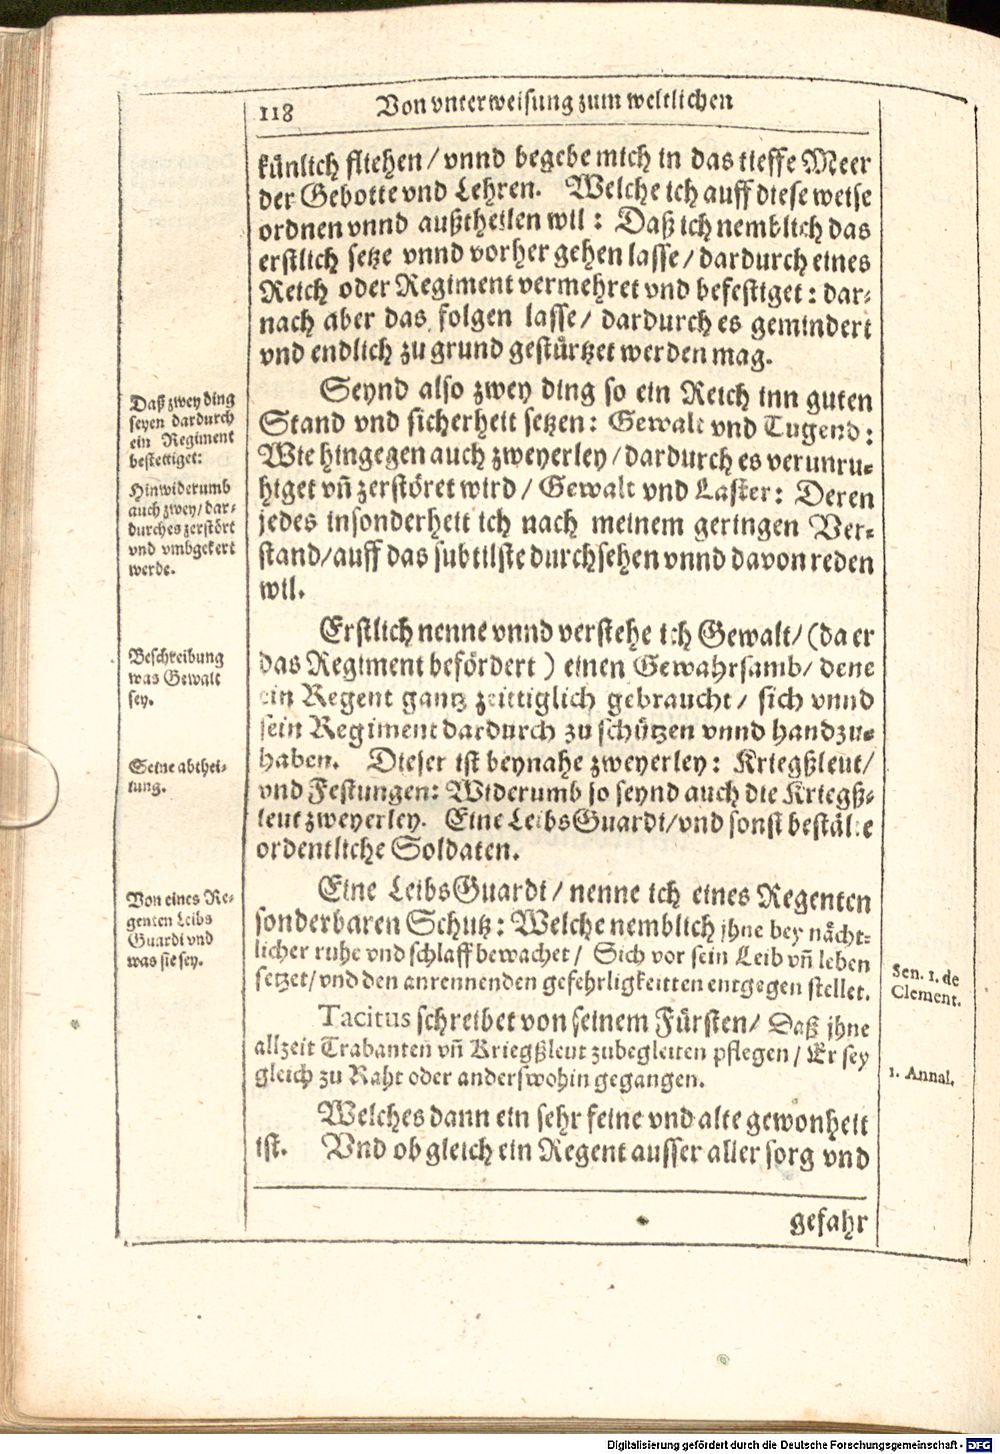 118 Von vnterweisung zum weltlichen
künlich fliehen/ vnnd begebe mich in das tieffe Meer
der Gebotte vnd Lehren. Welche ich auff diese weise
ordnen vnnd außtheilen wil: Daß ich nemblich das
erstlich setze vnnd vorher gehen lasse/ dardurch eines
Reich oder Regiment vermehret vnd befestiget: dar-
nach aber das folgen lasse/ dardurch es gemindert
vnd endlich zu grund gestürtzet werden mag.
Daß zwey ding
seyen dardurch
ein Regiment
bestettiget:
Hinwiderumb
auch zwey/ dar-
durch es zerstört
vnd vmbgekert
werde.
Seynd also zwey ding so ein Reich inn guten
Stand vnd sicherheit setzen: Gewalt vnd Tugend:
Wie hingegen auch zweyerley/ dardurch es verunru-
higet vñ zerstöret wird/ Gewalt vnd Laster: Deren
jedes insonderheit ich nach meinem geringen Ver-
stand/ auff das subtilste durchsehen vnnd davon reden
wil.
Beschreibung
was Gewalt
sey.
Seine abthei-
lung.
Erstlich nenne vnnd verstehe ich Gewalt/ (da er
das Regiment befördert) einen Gewahrsamb/ dene
ein Regent gantz zeittiglich gebraucht/ sich vnnd
sein Regiment dardurch zu schützen vnnd handzu-
haben. Dieser ist beynahe zweyerley: Kriegßleut/
vnd Festungen: Widerumb so seynd auch die Kriegß-
leut zweyerley. Eine Leibs Guardi/ vnd sonst bestälte
ordentliche Soldaten.
Von eines Re-
genten Leibs
Guardi vnd
was sie sey.
Eine Leibs Guardi/ nenne ich eines Regenten
sonderbaren Schutz: Welche nemblich jhne bey nächt-
licher ruhe vnd schlaff bewachet/ Sich vor sein Leib vñ leben
setzet/ vnd den anrennenden gefehrligkeitten entgegen stellet.
Sen. 1. de
Clement.
Tacitus schreibet von seinem Fürsten/ Daß jhne
allzeit Trabanten vñ Kriegßleut zubegleiten pflegen/ Er sey
gleich zu Raht oder anderswohin gegangen.
1. Annal.
Welches dann ein sehr feine vnd alte gewonheit
ist. Vnd ob gleich ein Regent ausser aller sorg vnd
gefahr
Digitalisierung gefördert durch die Deutsche Forschungsgemeinschaft - DFG